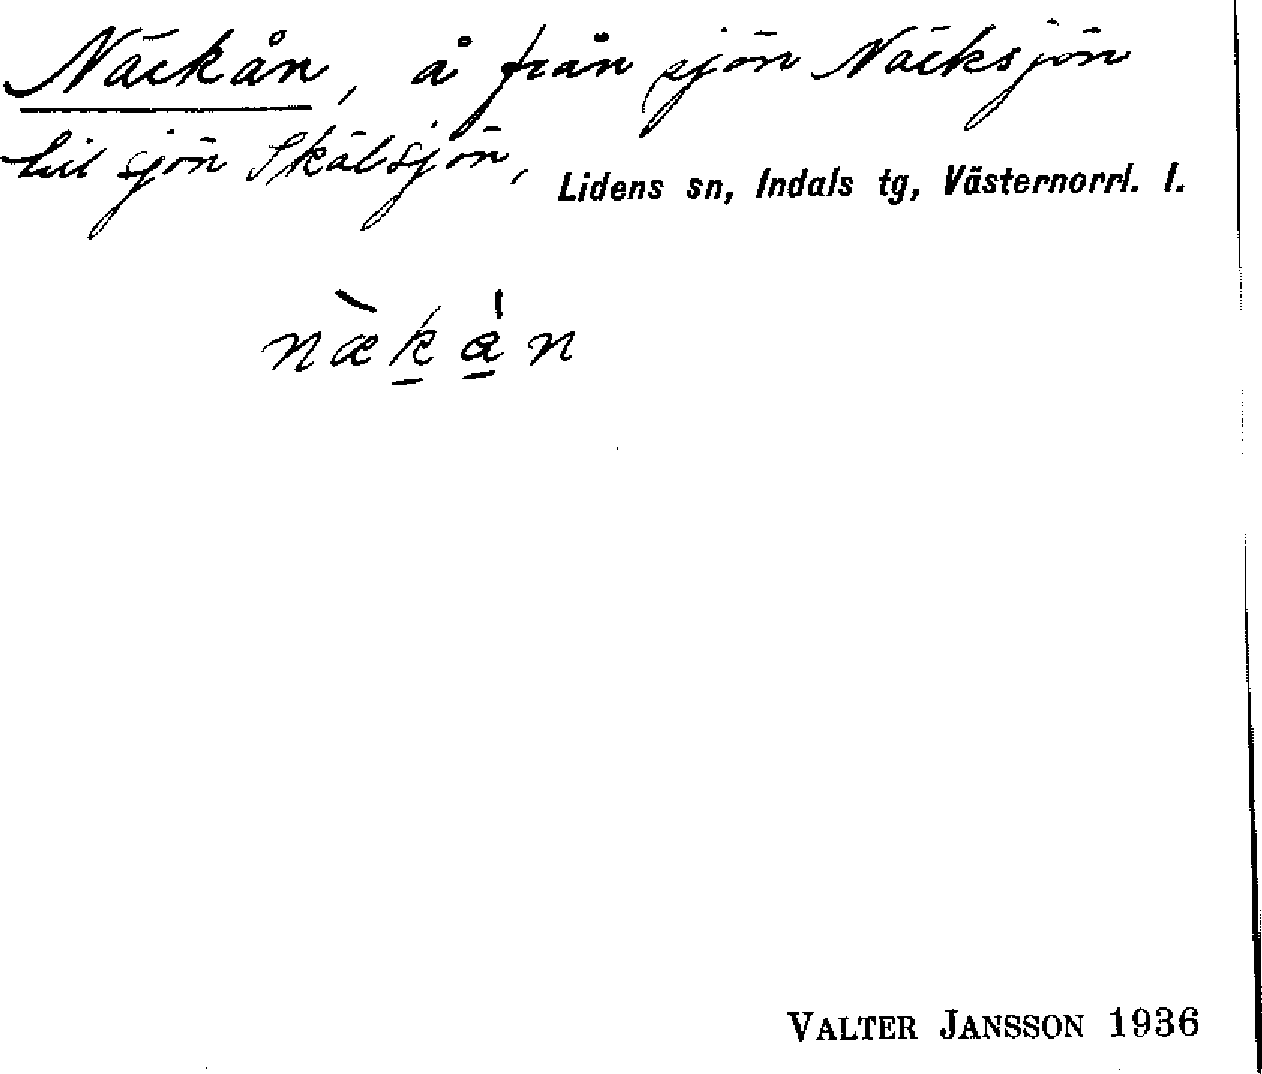 Näckån, å från sjön Näcksjön
till sjön Skälsjön, Lidens sn, Indals tg, Västernorrl. l.
næ̀kå̀n
VALTER JANSSON 1936